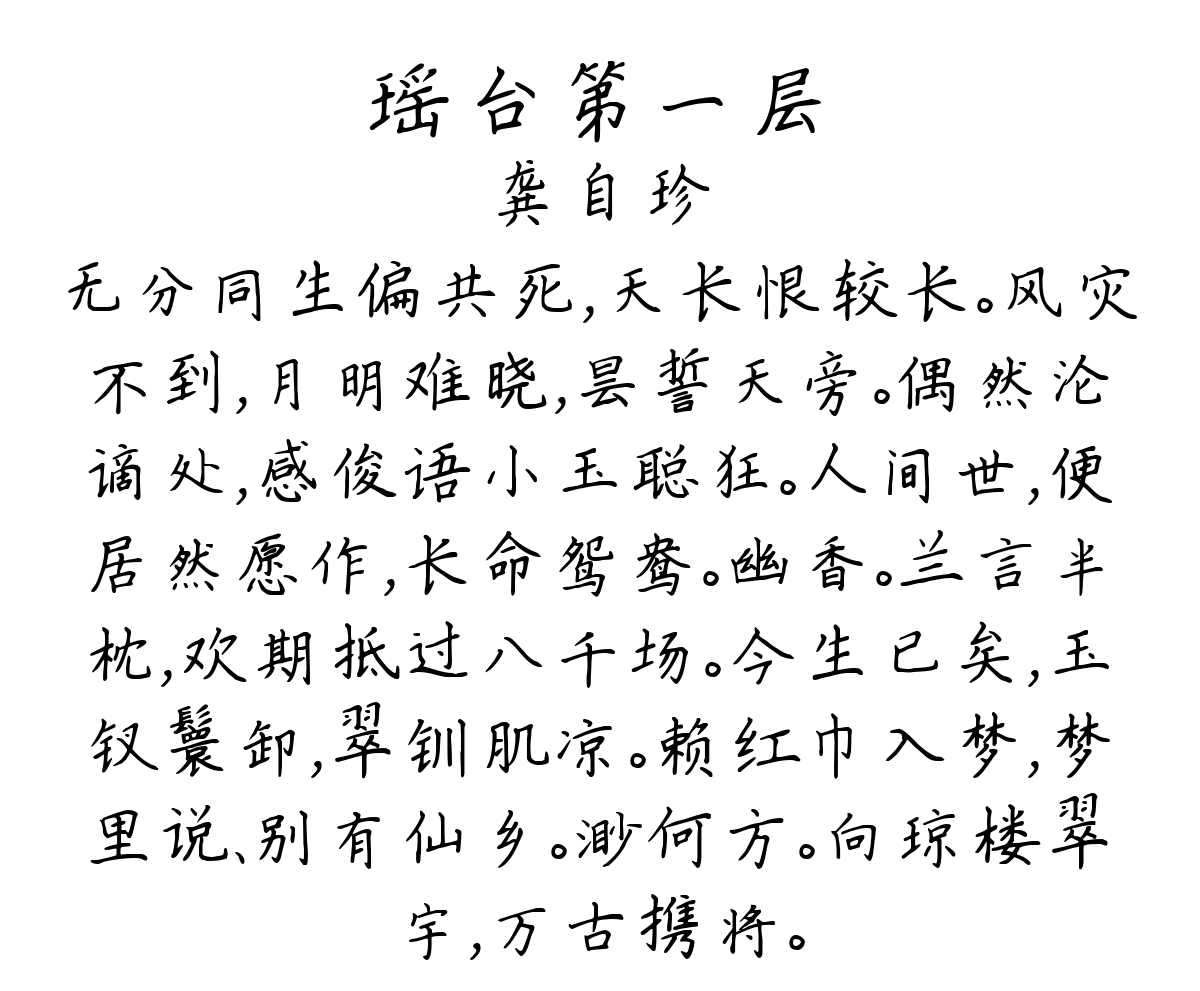 瑶台第一层
龚自珍
无分同生偏共死,天长恨较长。风灾
不到,月明难晓,昙誓天旁。偶然沦
谪处,感俊语小玉聪狂。人间世,便
居然愿作,长命鸳鸯。幽香。兰言半
枕,欢期抵过八千场。今生已矣,玉
钗鬟卸,翠钏肌凉。赖红巾入梦,梦
里说、别有仙乡。渺何方。向琼楼翠
宇,万古携将。